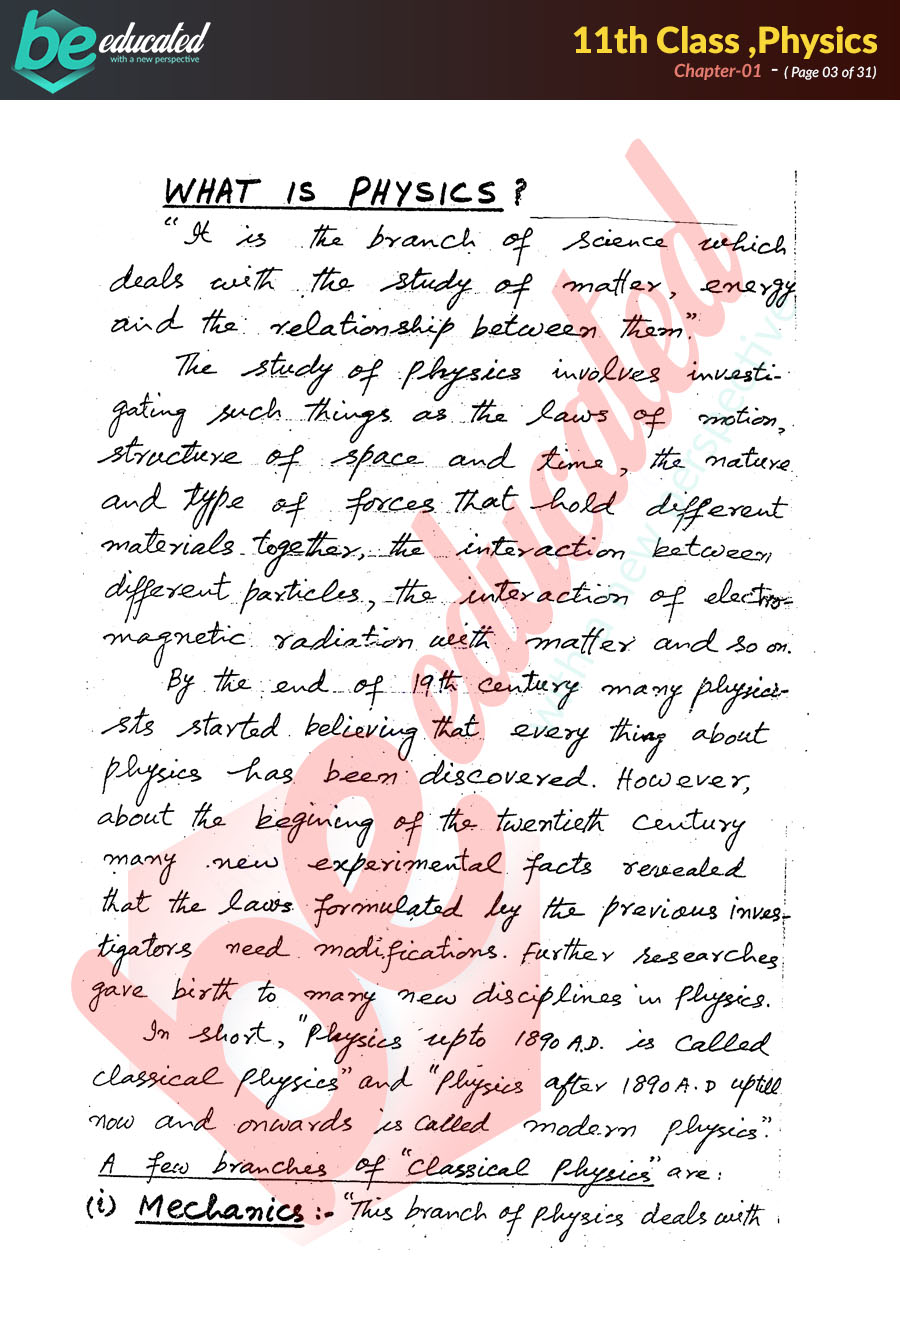 be educated
with a new perspective
11th Class ,Physics
Chapter-01 - ( Page 03 of 31)
WHAT IS PHYSICS?
"It is the branch of science which
deals with the study of matter, energy
and the relationship between them".
The study of physics involves investi-
gating such things as the laws of motion,
structure of space and time, the nature
and type of forces that hold different
materials together, the interaction between
different particles, the interaction of electro-
magnetic radiation with matter and so on.
By the end of 19th century many physici-
sts started believing that every thing about
physics has been discovered. However,
about the begining of the twentieth century
many new experimental facts revealed
that the laws formulated by the previous inves-
tigators need modifications. Further researches
gave birth to many new disciplines in Physics.
In short, "Physics upto 1890 A.D. is called
classical physics" and "Physics after 1890 A.D uptill
now and onwards is called modern physics".
A few branches of "Classical Physics" are:
(i) Mechanics:- "This branch of physics deals with
be educated
with a new perspective